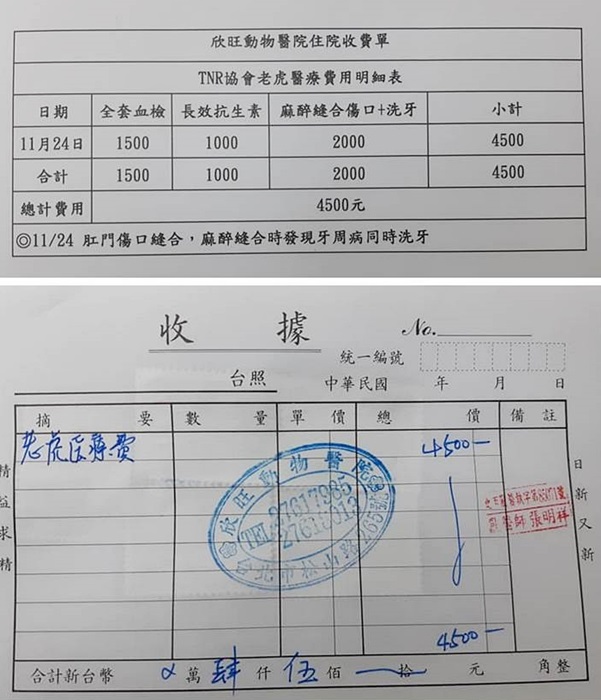 欣旺動物醫院住院收費單
TNR協會老虎醫療費用明細表
日期 全套血檢 長效抗生素 麻醉縫合傷口+洗牙 小計
11月24日 1500 1000 2000 4500
合計 1500 1000 2000 4500
總計費用 4500元
◎11/24 肛門傷口縫合，麻醉縫合時發現牙周病同時洗牙
收 據
No.
統一編號
台照 中華民國 年 月 日
摘 要 數 量 單 價 總 價 備 註
老虎医療費 4500-
精益求精
日新又新
欣旺動物醫院
TEL:27617985
獸醫師 張明祥
4500-
合計新台幣 萬 肆 仟 伍 佰 拾 元 角整